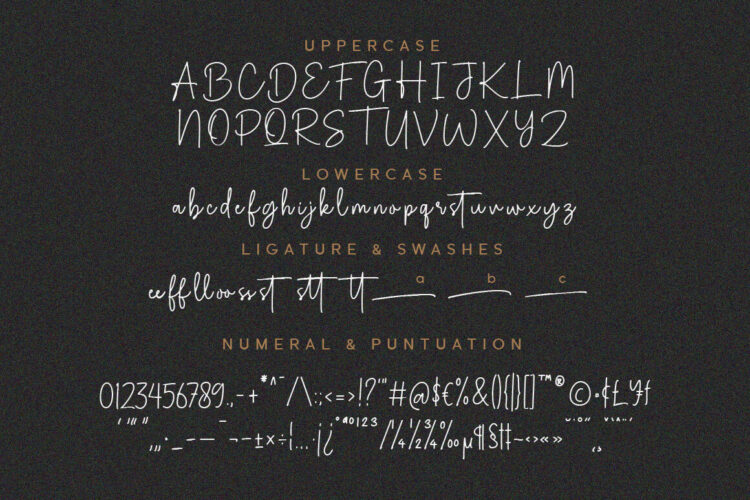 UPPERCASE
ABCDEFGHIJKLM
NOPQRSTUVWXYZ
LOWERCASE
abcdefghijklmnopqrstuvwxyz
LIGATURE & SWASHES
ee ff ll oo ss st stt tt a b c
NUMERAL & PUNTUATION
0123456789.,-+*^¯/\:;<=>!?'"#@$€%&(){|}[]™®©·¢£¥ƒ
‚'""„·_-—¬-±×÷¦…·¡¿°ªº¹²³/¼½¾‰µ¶§†‡~‹›«»